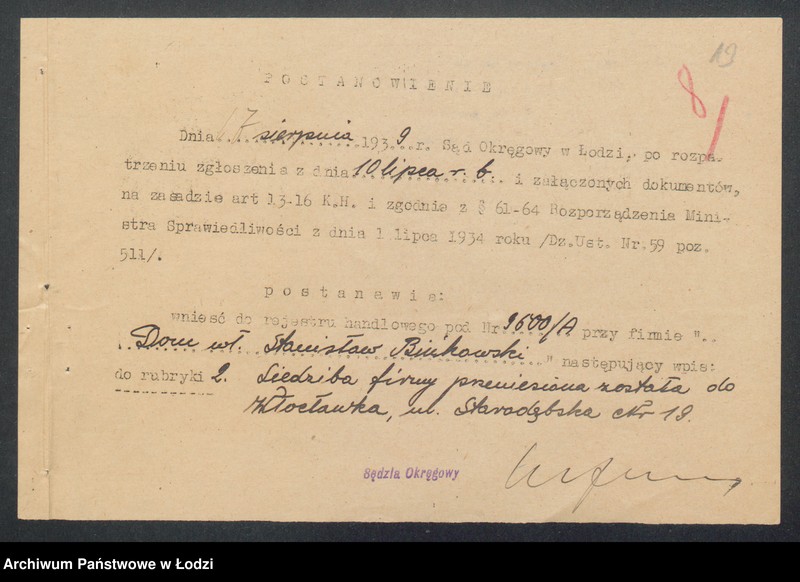 19
8
POSTANOWIENIE
Dnia 17 sierpnia 1939 r. Sąd Okręgowy w Łodzi, po rozpa-
trzeniu zgłoszenia z dnia 10 lipca r. b. i załączonych dokumentów,
na zasadzie art 13-16 K.H. i zgodnie z § 61-64 Rozporządzenia Mini-
stra Sprawiedliwości z dnia 1 lipca 1934 roku /Dz.Ust. Nr.59 poz.
511/.
postanawia:
wnieść do rejestru handlowego pod Nr 9600/A przy firmie "..
Dom wł. Stanisław Bińkowski " następujący wpis:
do rubryki 2. Siedziba firmy przeniesiona została do
Włocławka, ul. Starodębska Nr 19.
Sędzia Okręgowy
Archiwum Państwowe w Łodzi